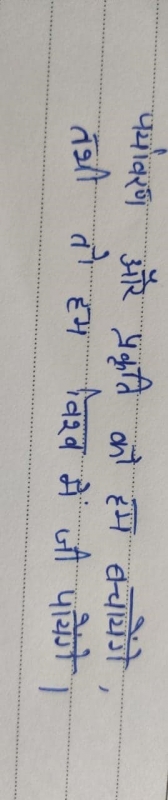 पर्यावरण और प्रकृति को हम बचायेंगे,
तभी तो हम विश्व में जी पायेंगे।